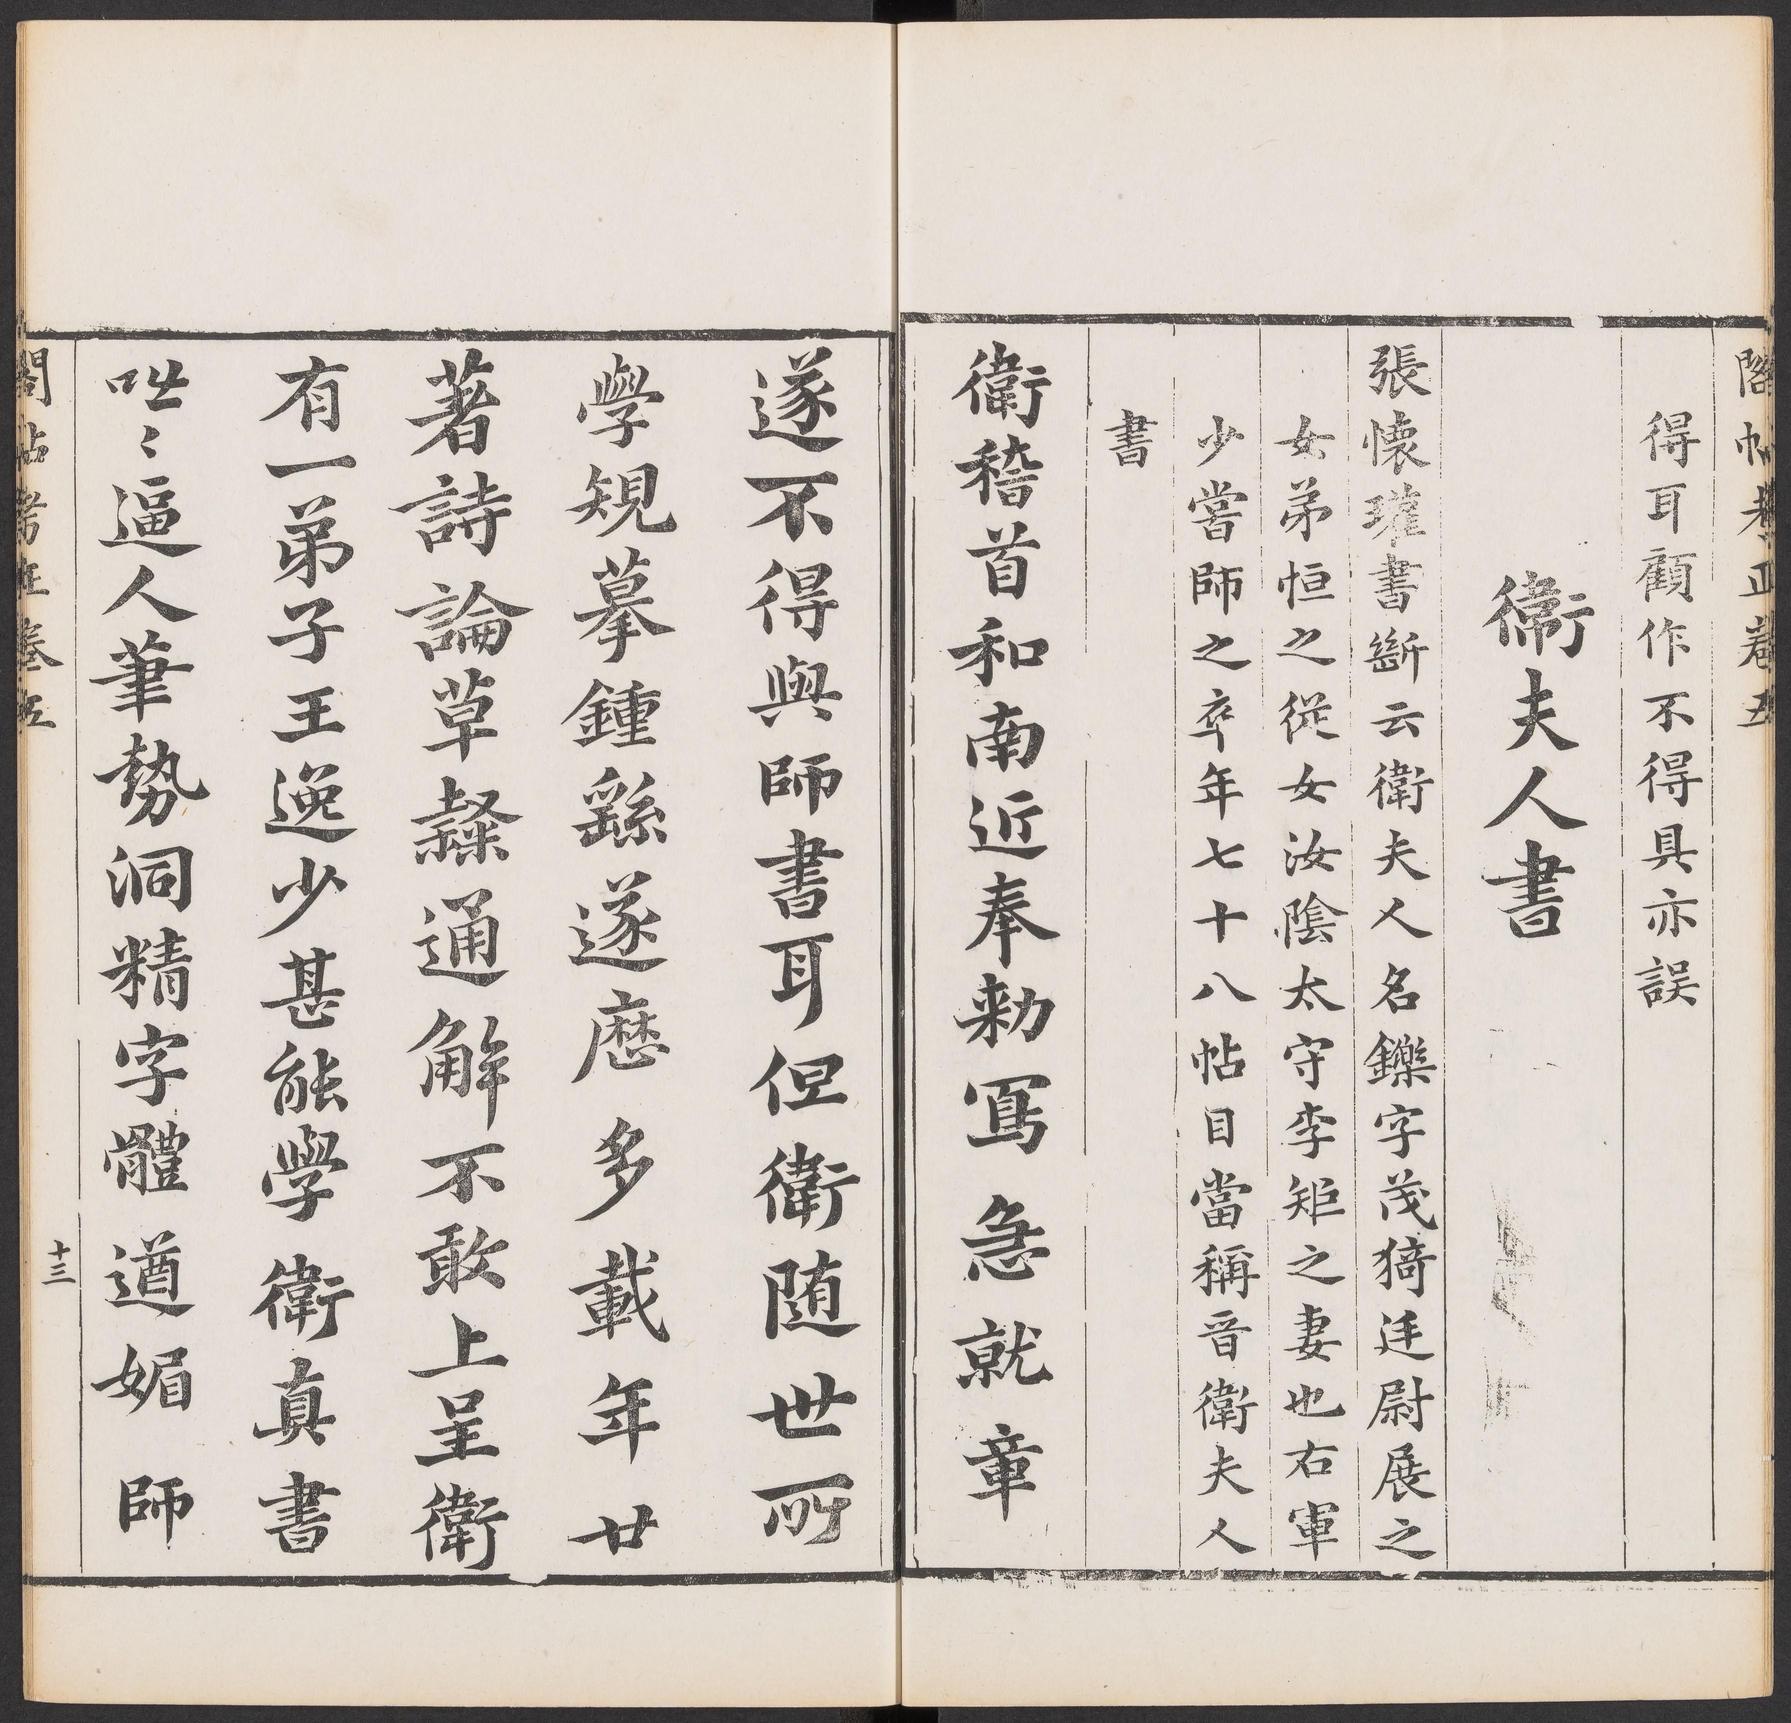 閣帖考正卷五
得耳顧作不得具亦誤
衛夫人書
張懷瓘書斷云衛夫人名鑠字茂猗廷尉展之
女弟恒之從女汝陰太守李矩之妻也右軍
少嘗師之卒年七十八帖目當稱晉衛夫人
書
衛稽首和南近奉勑寫急就章
遂不得與師書耳但衛随世所
學規摹鍾繇遂歷多載年廿
著詩論草隸通解不敢上呈衛
有一弟子王逸少甚能學衛真書
咄〻逼人筆勢洞精字體遒媚師
閣帖考正卷五
十三